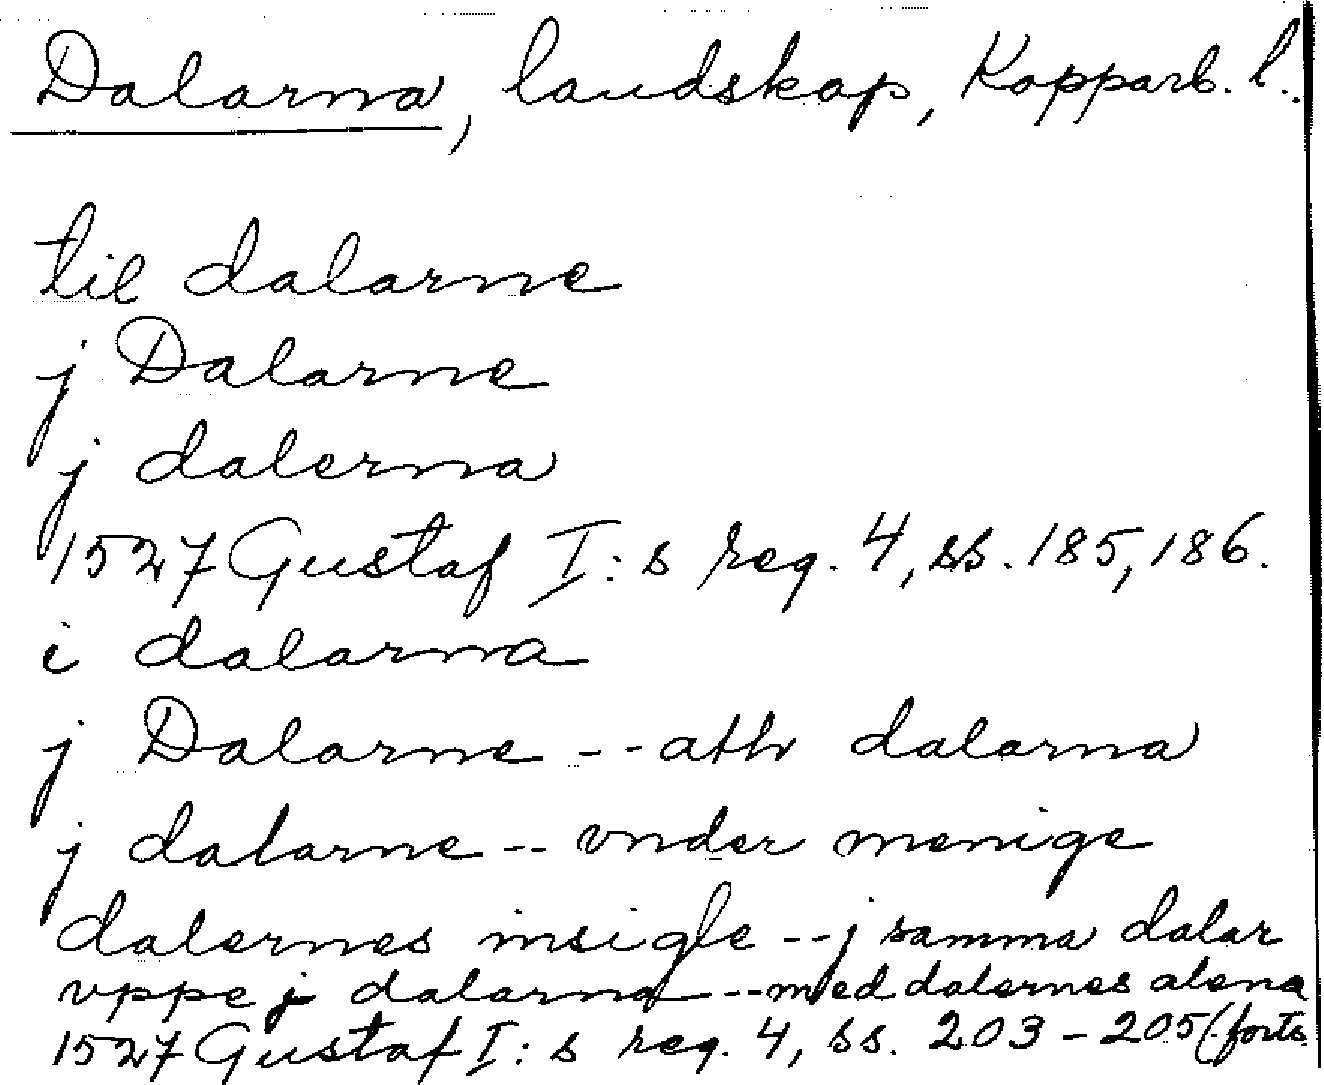 Dalarna, landskap, Kopparb. l.
til dalarne
j Dalarne
j dalerna
1527 Gustaf I:s reg. 4, ss. 185, 186.
i dalarna
j Dalarne -- ath dalarna
j dalarne -- vnder menige
dalernes insigle -- j samma dalar
vppe j dalarna -- med dalernes alena
1527 Gustaf I:s reg. 4, ss. 203-205 (forts